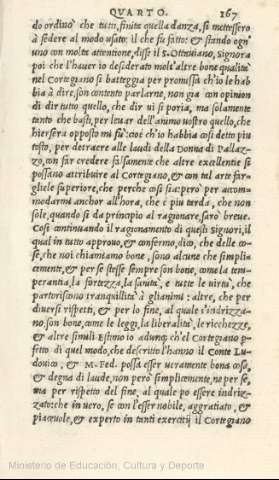 QVARTO. 167
do ordinò che tutti, finite quella danza, si mettessero
à sedere al modo usato: il che fu fatto; & stando ogn'
uno con molte attentione, disse il S. Ottauiano, Signora
poi che l'hauer io desiderato molt'altre bone qualità
nel Cortegiano si batteggia per promissa ch'io le hab
bia à dire, son contento parlarne, non già con opinion
di dir tutto quello, che dir ui si poria, ma solamente
tanto che basti, per leuar dell'animo uostro quello, che
hiersera opposto mi fu: cioè ch'io habbia così detto piu
tosto, per detraere alle laudi della Donna di Pallaz-
zo, con far credere falsamente che altre excellentie si
possano attribuire al Cortegiano, & con tal arte far-
gliele superiore, che perche così sia: però per accom-
modarmi anchor all'hora, che è piu tarda, che non
sole, quando si da principio al ragionare, sarò breue.
Così continuando il ragionamento di questi signori, il
qual in tutto approuo, & confermo, dico, che delle co-
se, che noi chiamiamo bone, sono alcune che simplici-
cemente, & per se stesse sempre son bone, come la tem-
perantia, la fortezza, la sanità, e tutte le uirtù, che
partoriscono tranquillità à glianimi: altre, che per
diuersi rispetti, & per lo fine, al quale s'indirizza-
no, son bone, come le leggi, la liberalità, le ricchezze,
& altre simili. Estimo io adunq; ch'el Cortegiano p-
fetto di quel modo, che descritto l'hanno il Conte Lu-
douico, & M. Fed. possa esser ueramente bona cosa,
& degna di laude, non però simplicemente, ne per se,
ma per rispetto del fine, al quale po essere indriz-
zato: che in uero, se con l'esser nobile, aggratiato, &
piaceuole, & experto in tanti exercitij il Cortegiano
Ministerio de Educación, Cultura y Deporte